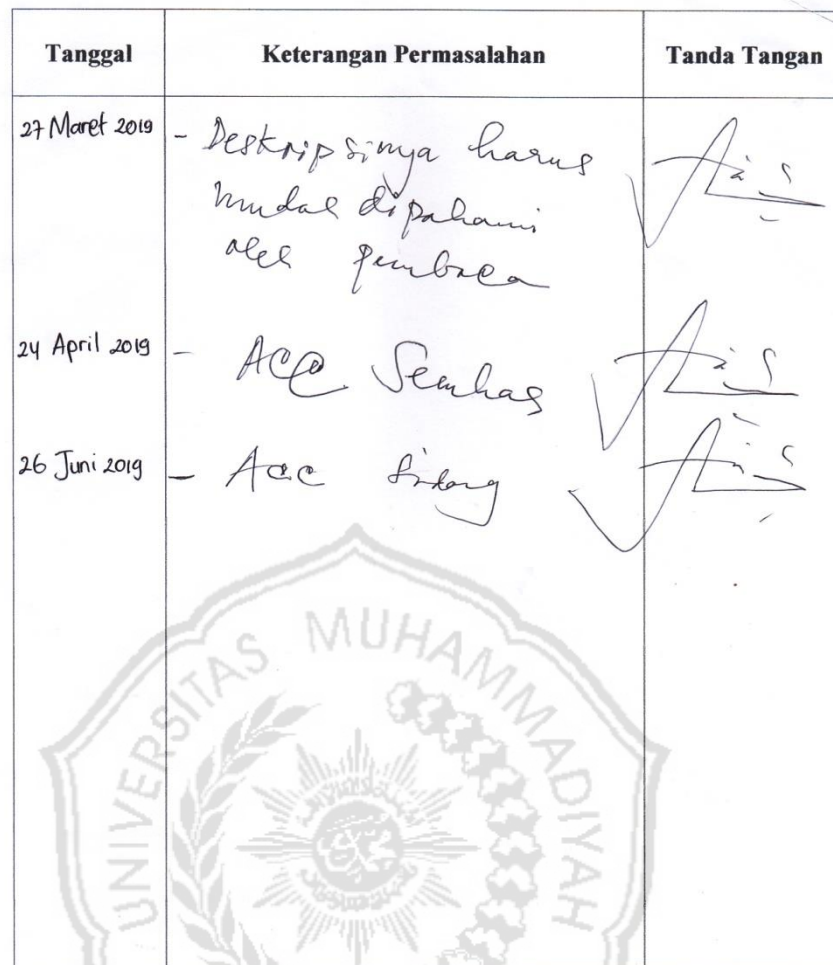 Tanggal Keterangan Permasalahan Tanda Tangan
27 Maret 2019 - Deskripsinya harus
mudah dipahami
oleh pembaca
24 April 2019 - Acc Semhas
26 Juni 2019 - Acc Sidang
UNIVERSITAS MUHAMMADIYAH